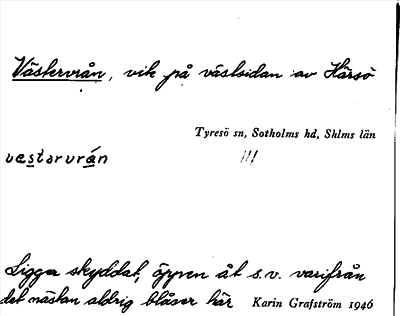 Västervrån, vik på västsidan av Härsö
Tyresö sn, Sotholms hd, Shlms län
västərvrán
Ligger skyddat, öppen åt s.v. varifrån
det nästan aldrig blåser här Karin Grafström 1946